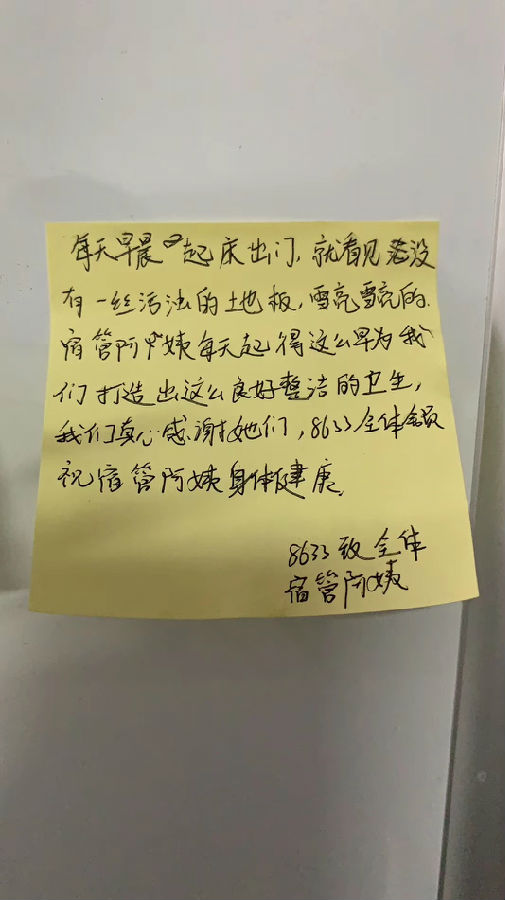 每天早晨起床出门，就看见没
有一丝污浊的土地板，雪亮雪亮的.
宿管阿姨每天起得这么早为我
们打造出这么良好整洁的卫生，
我们真心感谢她们，8633全体
祝宿管阿姨身体健康。
8633致全体
宿管阿姨